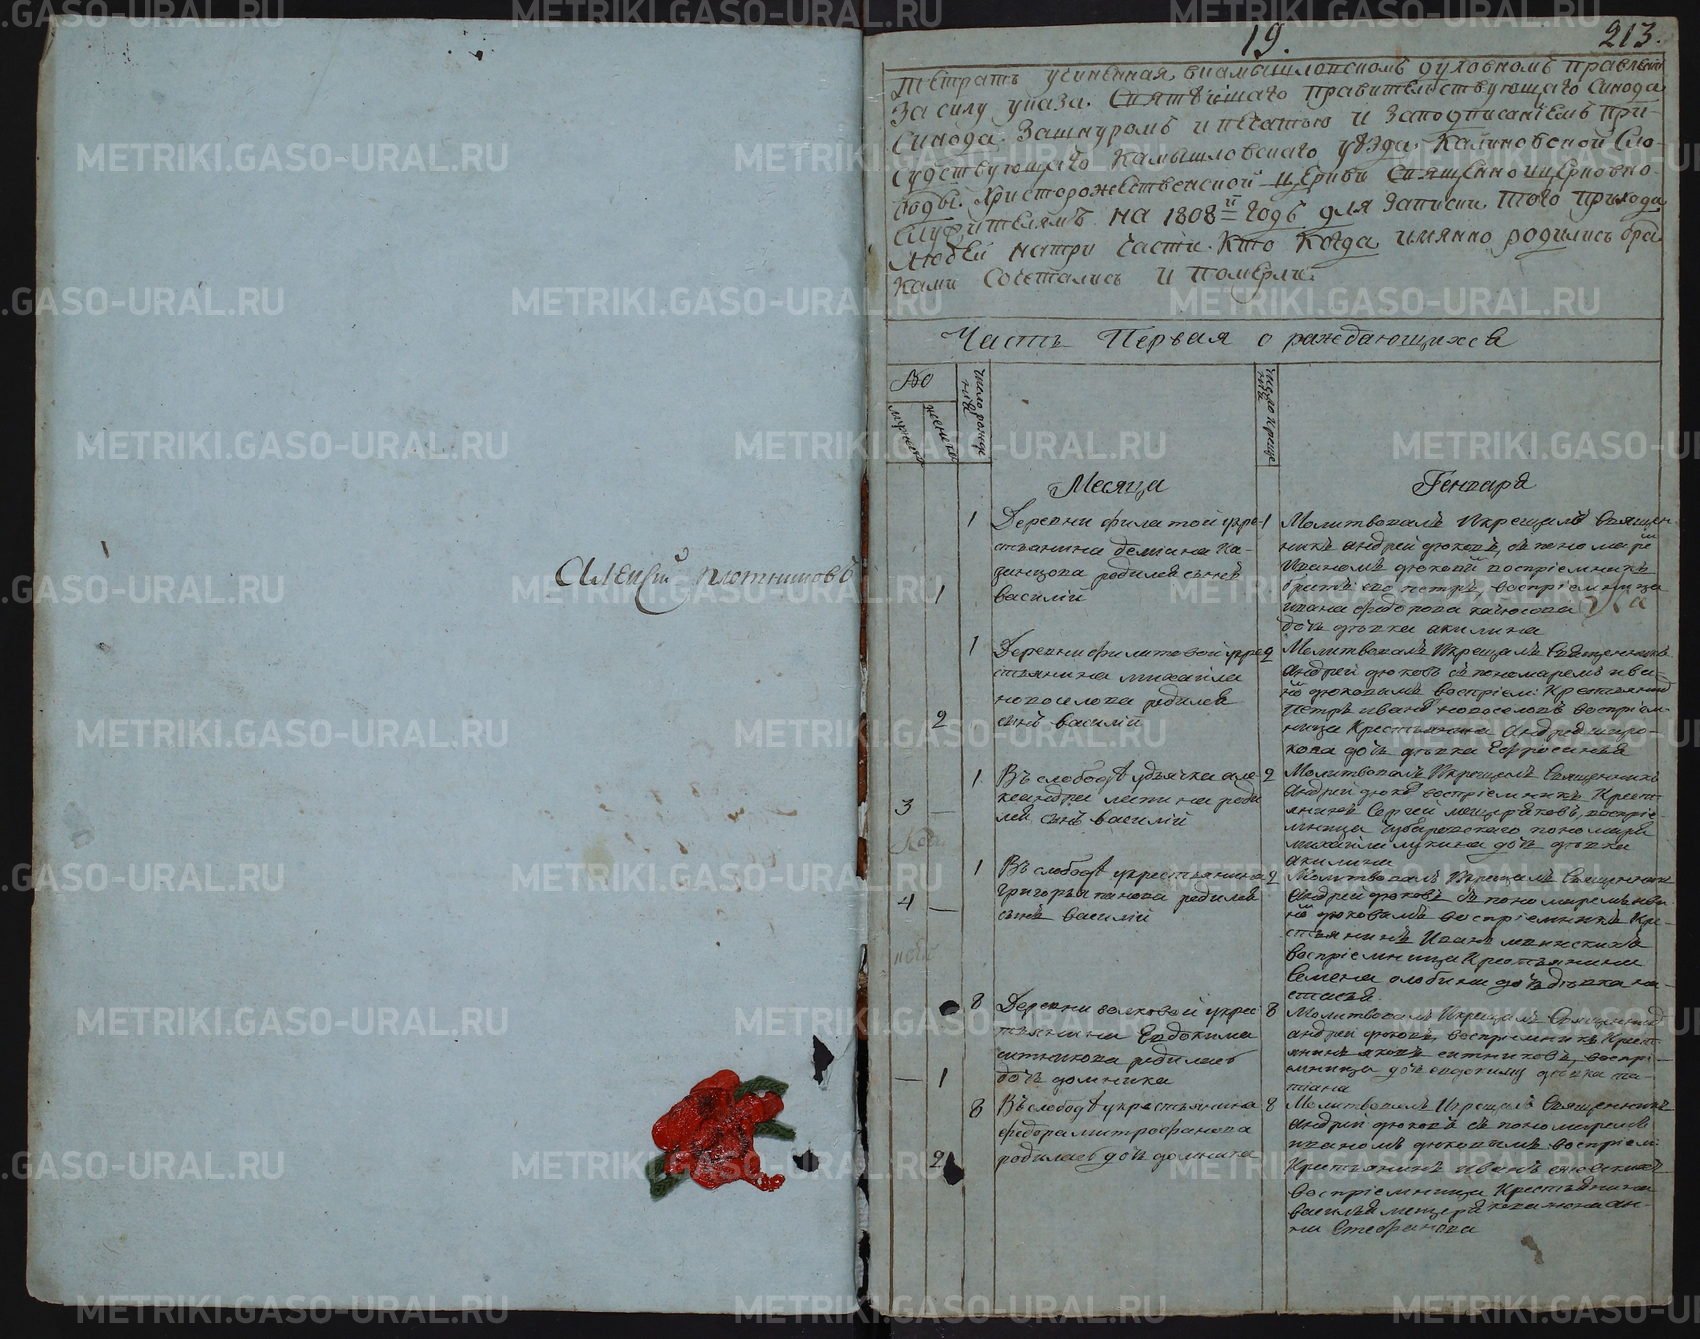 19.
213.
тетрать учиненная в камышловскомъ духовномъ правлении
За силу указа. Святейшаго правительствующаго Синода
Синода. Зашнуромъ и печатью и Заподписаниемъ при-
судствующаго Камышловскаго уезда. Калиновской Сло-
боды. Христорожественской церкви Священноицерковно-
служителямъ на 1808й годъ для Записки того прихода
людей натри части. Кто Когда имянно родились бра-
ками Сочетались и померли.
Часть Первая о раждающихся
№
число рожде
нія
число креще
нія
мужеска
женска
Месяца
Генваря
1
1
Деревни фила той укре-
стьянина деміана Ка-
занцова родился сынъ
василій
1
Молитвовалъ Икрещалъ Священ-
никъ андрей дюковъ, съ пономаре
Иваномъ дюковй воспріемникъ
братъ его петръ, воспріемница
ивана федорова
дочь девка акилина
1
2
Деревни филатовой укре
стьянина михаила
новоселова родился
сынъ василій
2
Молитвовалъ Икрещалъ Священникъ
андрей дюковъ съ пономаремъ ива-
нъ дюковымъ воспріем: Крестьянинъ
петръ иванъ новоселовъ воспріем-
ница Крестьянина андрея широ-
кова дочь девка Ефросинья
1
3
Въ слободе удьячка але
ксандра лапина роди
лся сынъ василій
2
Молитвовалъ Икрещалъ Священникъ
андрей дюковъ воспріемникъ Кресть
янинъ Сергей мещеряковъ, воспріе-
мница Чубаровскаго пономаря
михаила лукина дочь девка
акилина
1
4
Въ слободе укрестьянина
григорья панова родился
сынъ василій
2
Молитвовалъ Икрещалъ Священник
андрей дюковъ съ пономаремъ ива
нъ дюковымъ воспріемникъ Кре-
стьянинъ Иванъ
воспріемница Крестьянина
Семена дочь девка на-
стасья.
8
1
Деревни волковой укрес
тьянина Евдокима
ситникова родилась
дочь домника
8
Молитвовалъ Икрещалъ Священникъ
андрей дюковъ, воспріемникъ Кресть
янинъ яковъ ситниковъ, воспрі-
емница дочь евдокиму девка та-
тиана
8
2
Въ слободе укрестьянина
федора митрофанова
родилась дочь домника
8
Молитвовалъ Икрещалъ Священникъ
андрей дюковъ съ пономаремъ
иваномъ дюковымъ воспріем:
Крестьянинъ иванъ
воспріемница Крестьянина
василья мещерякова жена ан-
на Стефанова
Алексій плотниковъ
METRIKI.GASO-URAL.RU